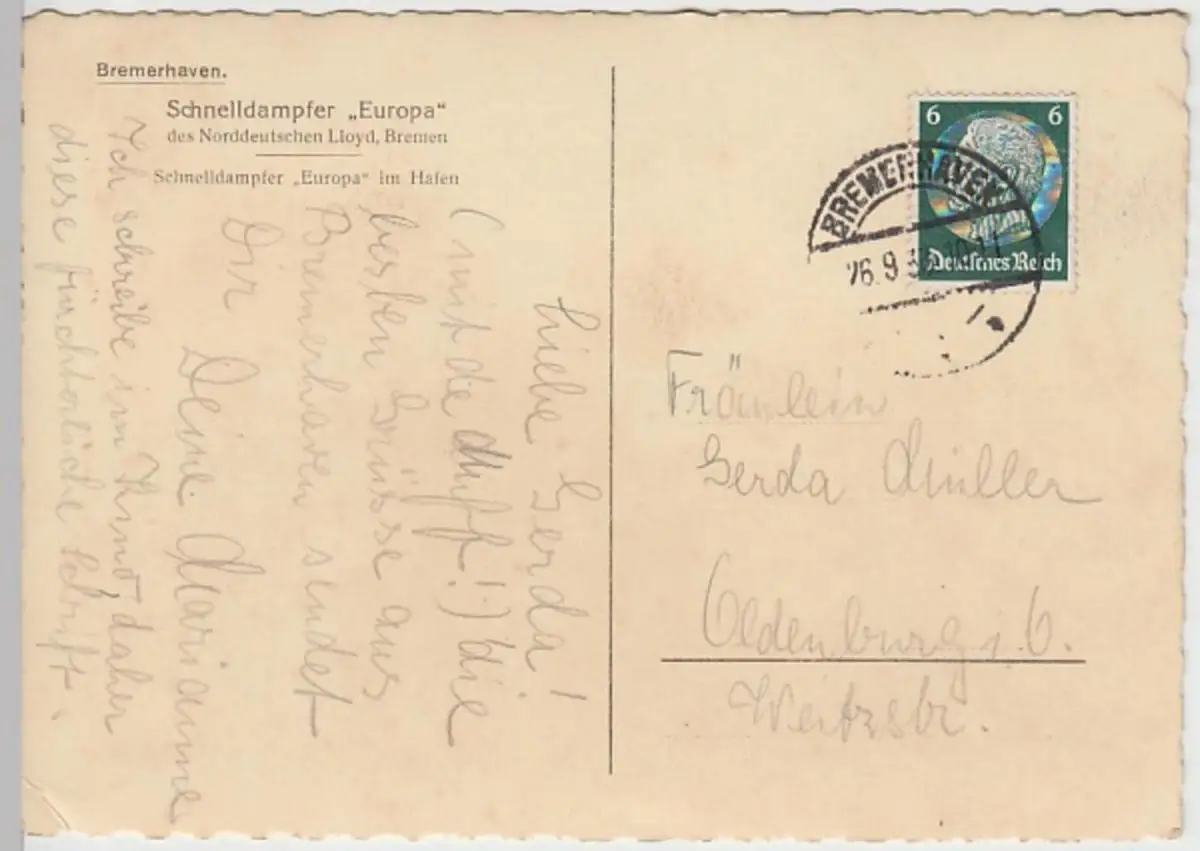 Bremerhaven.
Schnelldampfer „Europa"
des Norddeutschen Lloyd, Bremen
Schnelldampfer „Europa" im Hafen
Liebe Gerda!
(mit die Muff!) die
besten Grüsse aus
Bremerhaven sendet
Dir
Deine Marianne
Ich schreibe im Kino, daher
diese fürchterliche Schrift.
6 6
Deutsches Reich
BREMERHAVEN
26.9.3
Fräulein
Gerda Müller
Oldenburg i. O.